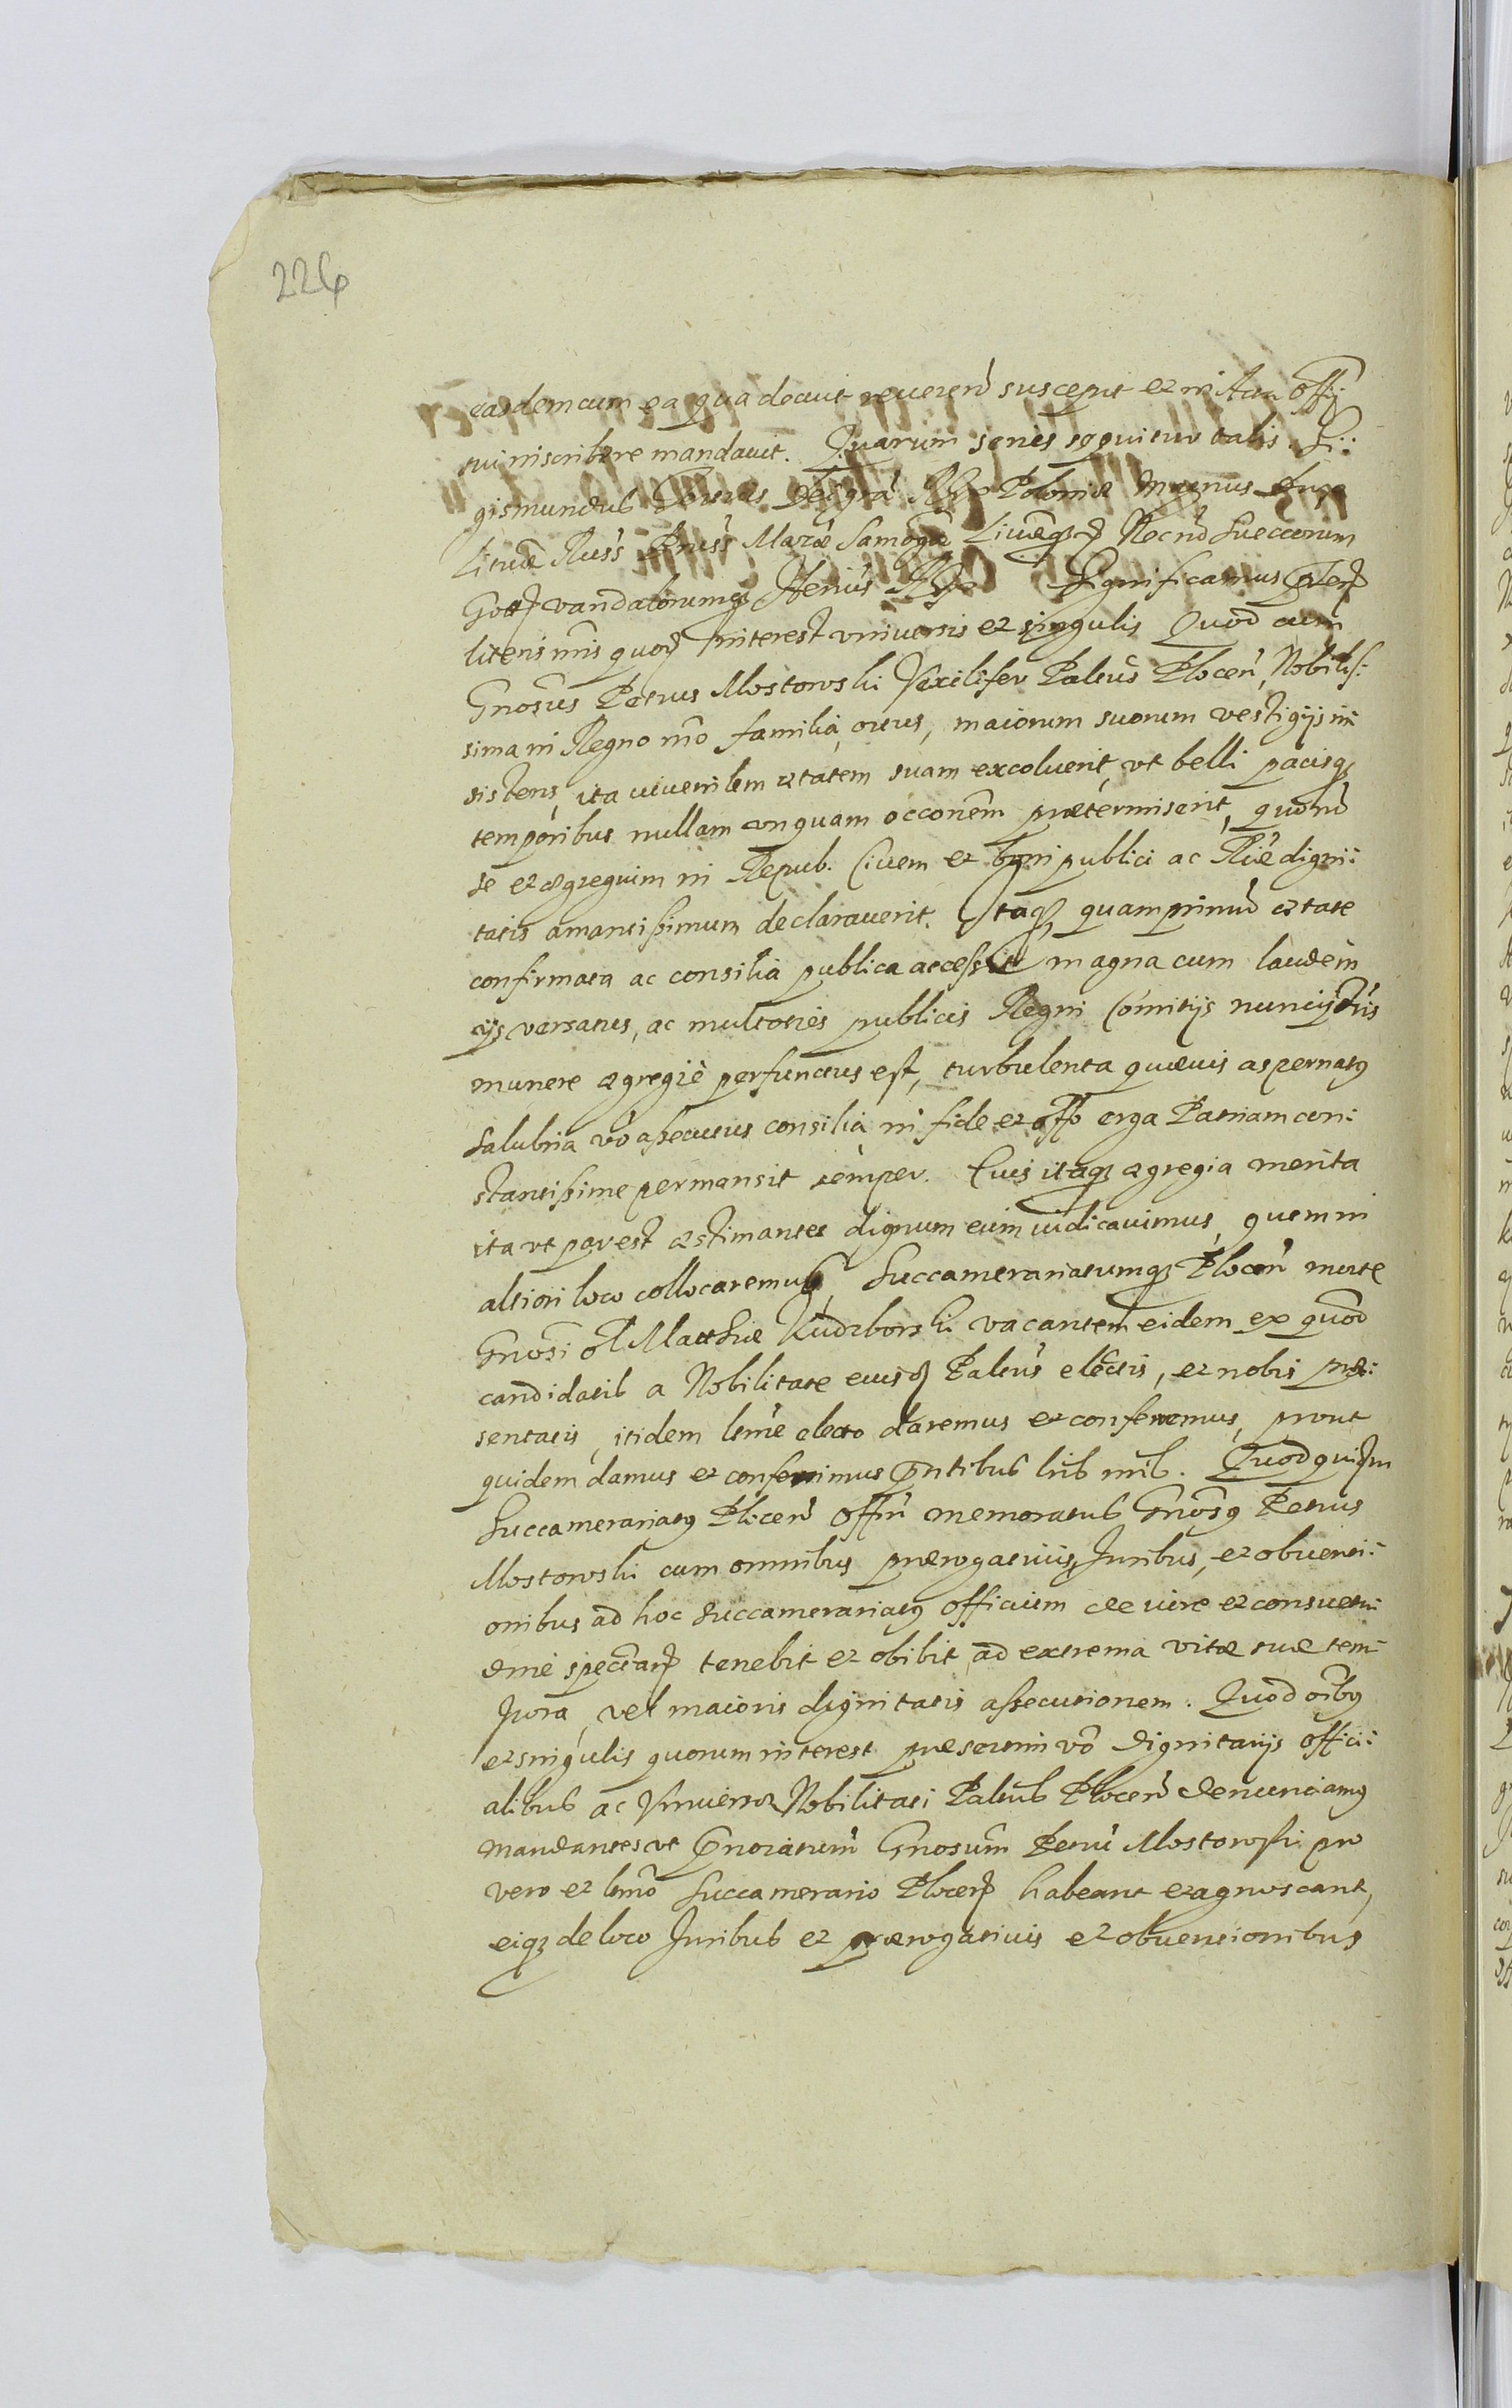 226
easdem cum ea qua decuit reveren suscepit et in Acta offij
sui inscribere mandavit. Quarum series sequitur talis. Si:
gismundus Tertius Dei gra Rex Poloniæ Magnus Dux
Lituæ Russ Pruss Mazoæ Samogæ Livæq Necno Sueccorum
Gott vandalorumq Herius Rex Significamus pntt
literis nris quor interest vniversis et singulis Quod cum
Gnosus Petrus Mostowski Vexilifer Paltus Plocen, Nobilis:
sima in Regno nro familia ortus, maiorum suorum vestigijs in:
sistens, ita iuvenilem ætatem suam excoluerit, vt belli pacisq
temporibus nullam vnquam occonem prætermiserit, quomo
se et ægregium in Repub. Civem et boni publici ac Riæ digni:
tatis amantissimum declaraverit. Itaq, quamprimum ætate
confirmata ac consilia publica accessit magna cum laude in
ijs versatus, ac multoties publicis Regni Comitijs nuncij Tris
munere ægregiè perfunctus est, turbulenta quævis aspernatq
Salubria vo assecutus consilia in fide et offo erga Patriam con:
stantissime permansit semper. Cuis itaq ægregia merita
ita vt par est æstimantes dignum eum iudicavimus, quem in
altiori loco collocaremus, Succamerariatumq Plocen morte
Gnosi ol Matthiæ Kudzborski vacantem eidem ex quor
candidatis a Nobilitate eiusd Paltus electis, et nobis præ:
sentatis, itidem lttme electo daremus et conferremus, prout
quidem damus et conferimus pntibus lris nris. Quod quidm
Succamerariatq Plocen Offm memoratus Gnosq Petrus
Mostowski cum omnibus prærogativis, Iuribus, et obventi:
onibus ad hoc Succamerariatq officium de iure et consuetu:
dine spectan tenebit et obibit ad extrema vitæ suæ tem:
pora, vel maioris dignitatis assecutionem. Quod oibq
et singulis quorum interest præsertim vo dignitarijs offici:
alibus ac Vniversæ Nobilitati Paltus Plocen denunciamq
mandantes vt pnoiatum Gnosum Petru Mostowski pro
vero et lttmo Succamerario Plocen habeant et agnoscant,
eiq de loco Iuribus et prærogativis et obventionibus